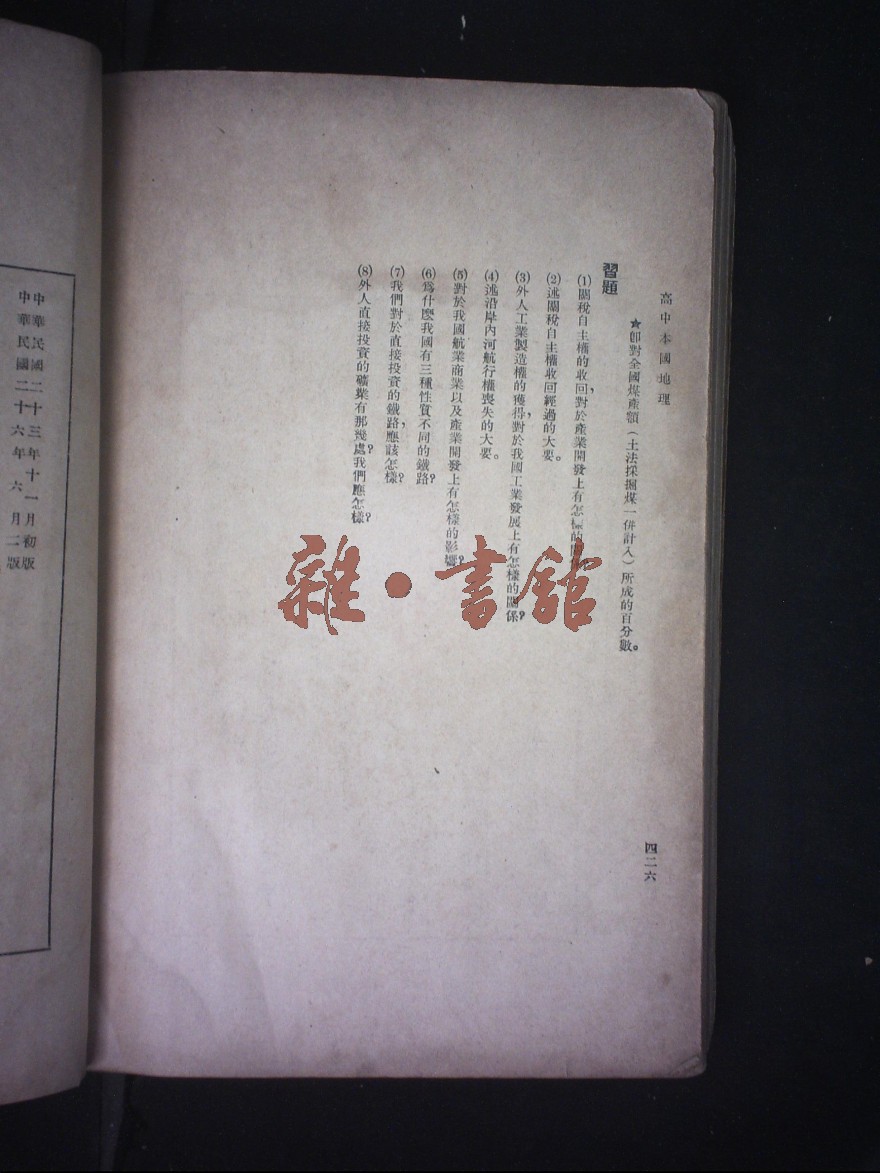 高中本國地理
四二六
★即對全國煤產額（土法採掘煤一併計入）所成的百分數。
習題
(1)關稅自主權的收回,對於產業開發上有怎樣的
(2)述關稅自主權收回經過的大要。
(3)外人工業製造權的獲得,對於我國工業發展上有怎樣的關係?
(4)述沿岸內河航行權喪失的大要。
(5)對於我國航業商業以及產業開發上有怎樣的影響?
(6)爲什麼我國有三種性質不同的鐵路?
(7)我們對於直接投資的鐵路,應該怎樣?
(8)外人直接投資的礦業有那幾處?我們應怎樣?
雜·書館
中華民國二十三年十一月初版
中華民國二十六年六月二版